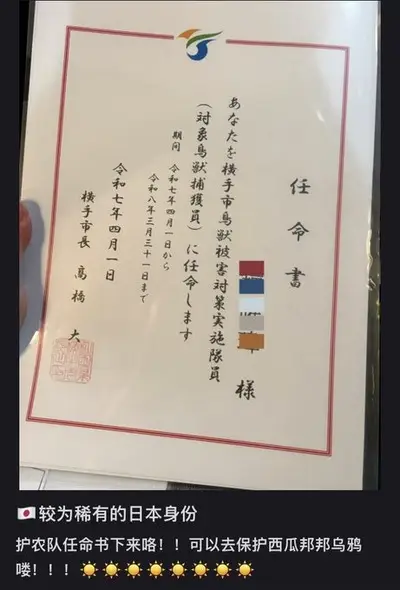 任命書
様
あなたを横手市鳥獣被害対策実施隊員
（対象鳥獣捕獲員）に任命します
期間 令和七年四月一日から
令和八年三月三十一日まで
令和七年四月一日
横手市長 高橋 大
🇯🇵较为稀有的日本身份
护农队任命书下来咯！！可以去保护西瓜邦邦乌鸦
喽！！！☀️☀️☀️☀️☀️☀️☀️☀️